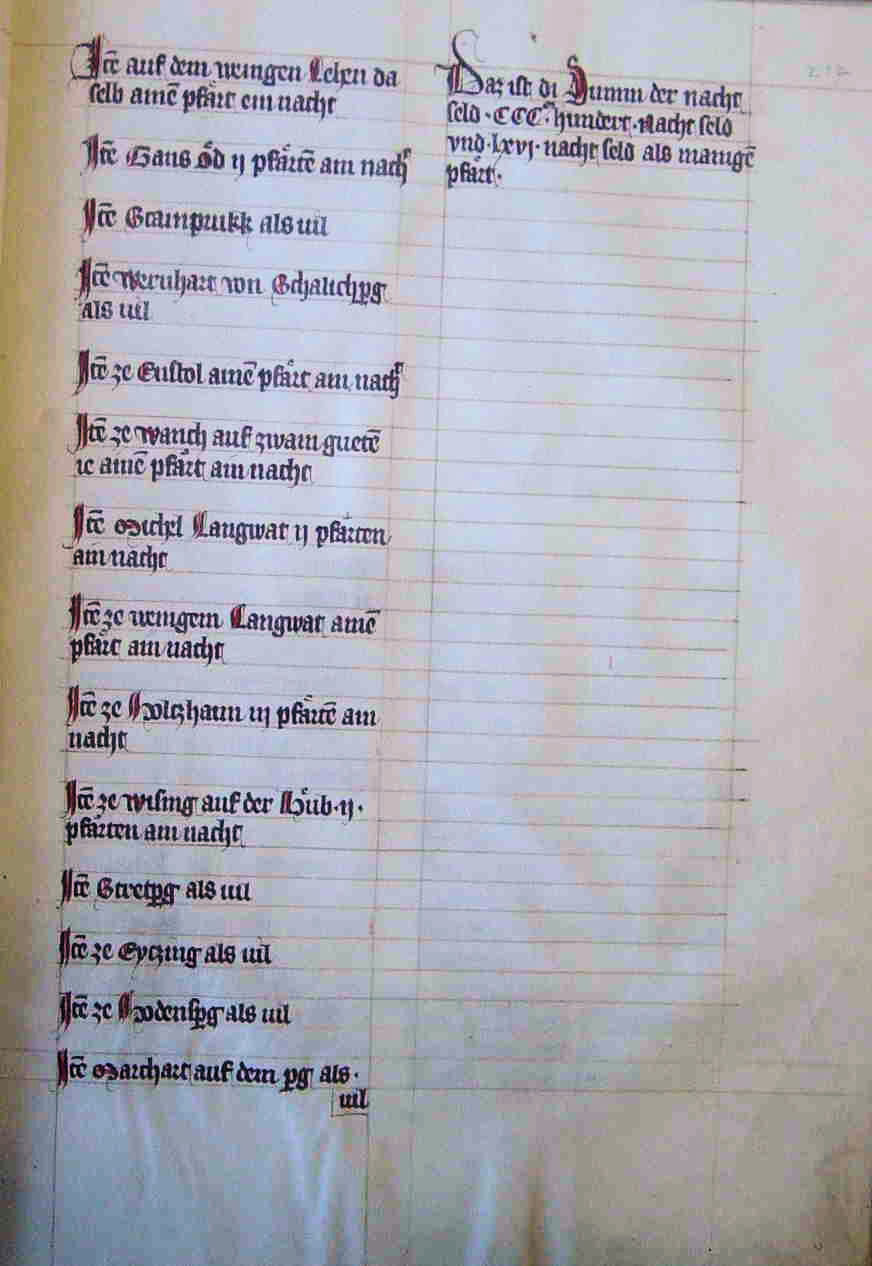 Itē auf dem wenigen Lehen da
selb amē pfärt ein nacht
Itē Hans Öd ij pfärtē ain nacht
Itē Grainprukk als uil
Itē Wernhart von Schalichpg
als uil
Itē ze Eustol amē pfärt ain nacht
Itē ze Wanch auf zwain guetē
ie amē pfärt ain nacht
Itē Michel Langwat ij pfärten
ain nacht
Itē ze wenigem Langwat amē
pfärt ain nacht
Itē ze Holczhaun iij pfärtē ain
nacht
Itē ze Wising auf der Hůb · ij ·
pfärten ain nacht
Itē Stretpg als uil
Itē ze Eyczing als uil
Itē ze Hodenspg als uil
Itē Marchart auf dem pg als ·
uil
Daz ist di Summ der nacht
seld · CCC · hundert · Nacht seld
vnd · lxvj · nacht seld als manigē
pfärt ·